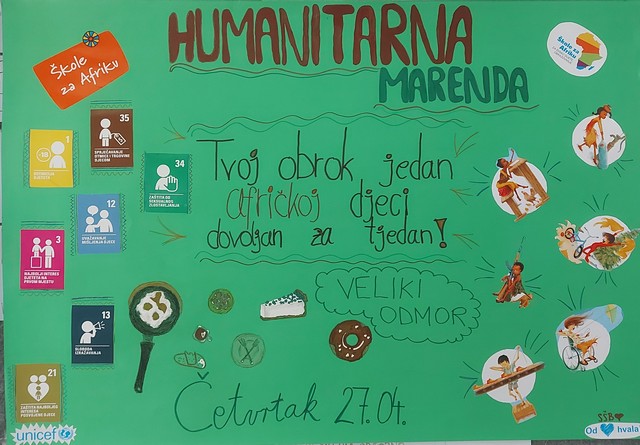 HUMANITARNA
MARENDA
Škole
za Afriku
Škole za
Afriku
Tvoj obrok jedan
afričkoj djeci
dovoljan za tjedan!
1
DEFINICIJA
DJETETA
35
SPRJEČAVANJE
OTMICE I TRGOVINE
DJECOM
34
ZAŠTITA OD
SEKSUALNOG
ZLOSTAVLJANJA
12
UVAŽAVANJE
MIŠLJENJA DJECE
3
NAJBOLJI INTERES
DJETETA NA
PRVOM MJESTU
13
SLOBODA
IZRAŽAVANJA
21
VELIKI
ODMOR
Četvrtak 27.04.
unicef
SŠB
Od hvala